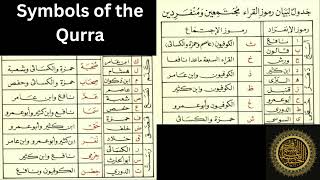 Symbols of the
Qurra
جدول لبيان رموز القراء مجتمعين ومنفردين
رموز الانفراد
رموز الاجتماع
نافع
الكوفيون (عاصم وحمزة والكسائي)
ث
قالون
ب
القراء السبعة ماعدا نافع
خ
ورش
ج
الكوفيون وابن عامر
ذ
ابن كثير
د
الكوفيون وابن كثير
ظ
البزي
الكوفيون وأبو عمرو
غ
قنبل
ز
حمزة والكسائي
ش
السوسي
ى
ك
ابن عامر
حمزة والكسائي وشعبة
صحبة
ل
هشام
حمزة والكسائي وحفص
صحاب
م
ابن ذكوان
نافع وابن عامر
عم
ن
عاصم
نافع وابن كثير وأبو عمرو
سما
ص
شعبة
ابن كثير وأبو عمرو
حق
ع
حفص
ف
حمزة
نفر
نافع وابن كثير
حرمي
ر
الكسائي
س
أبو الحارث
حصن
ت
الدوري